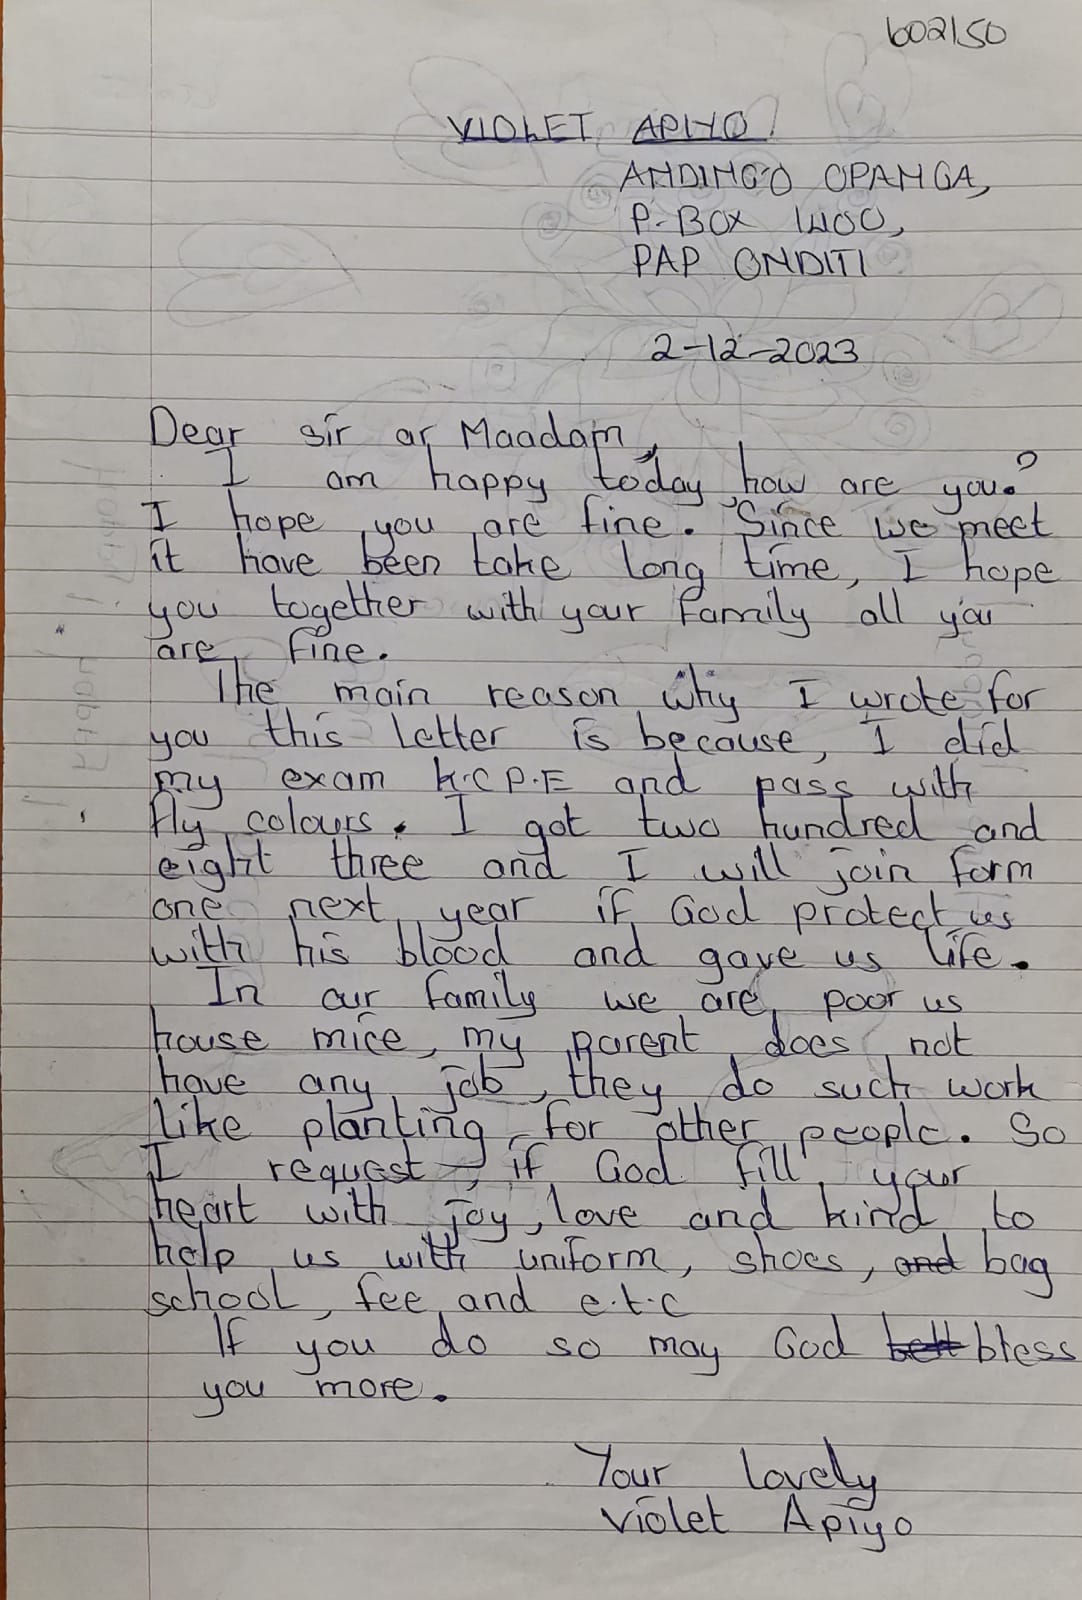 b02150
VIOLET APIYO
ANDINGO OPANGA,
P. BOX 1400,
PAP ONDITI
2-12-2023
Dear sir or Maadam,
I am happy today, how are you?
I hope you are fine. Since we meet
it have been take long time, I hope
you together with your family all you
are fine.
The main reason why I wrote for
you this letter is because, I did
my exam K.C.P.E and pass with
fly colours. I got two hundred and
eight three and I will join form
one next year if God protect us
with his blood and gave us life.
In our family we are poor us
house mice, my parent does not
have any job, they do such work
like planting for other people. So
I request, if God fill your
heart with joy, love and kind to
help us with uniform, shoes, and bag
school, fee and e.t.c
If you do so may God bless
you more.
Your lovely
Violet Apiyo